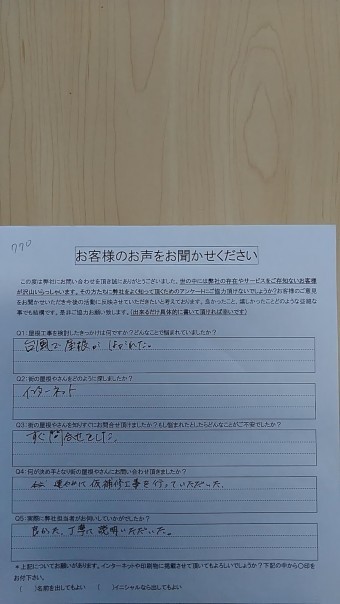 770
お客様のお声をお聞かせください
この度は弊社にお問い合わせを頂き誠にありがとうございました。世の中には弊社の存在やサービスをご存知ないお客様
が沢山いらっしゃいます。その方たちに弊社をよく知って頂くためのアンケートにご協力頂けないでしょうか?お客様のご意見
をお聞かせいただき今後の活動に反映させていただきたいと考えております。良かったこと、嬉しかったことどのような些細な
事でも結構です。是非ご協力お願い致します。(出来るだけ具体的に書いて頂ければ幸いです)
Q1:屋根工事を検討したきっかけは何ですか?どんなことで悩まれていましたか?
台風で屋根が はがれた。
Q2:街の屋根やさんをどのように探しましたか?
インターネット
Q3:街の屋根やさんを知りすぐにお問合せ頂けましたか?もし悩まれたとしたらどんなことがご不安でしたか?
すぐ問合せをした。
Q4:何が決め手となり街の屋根やさんにお問い合わせ頂きましたか?
速やかに仮補修工事を行っていただいた。
Q5:実際に弊社担当者がお伺いしていかがでしたか?
良かった。丁寧に説明いただいた。
*上記についてお願いがあります。インターネットや印刷物に掲載させて頂いてもよろしいでしょうか?下記の中から○印を
お付下さい。
( )名前を出してもよい ( )イニシャルなら出してもよい